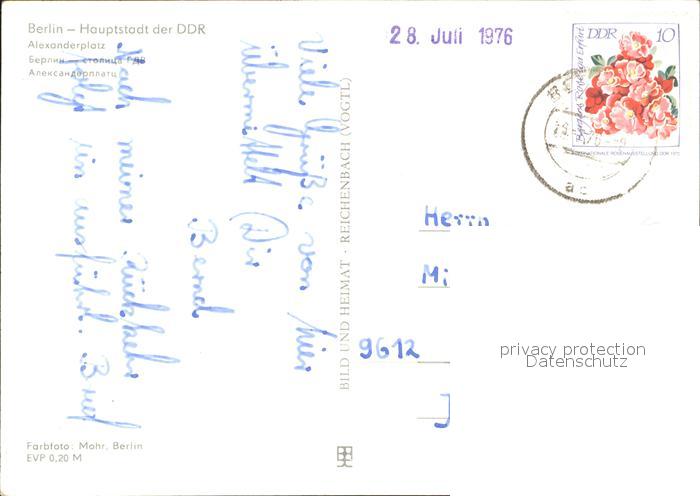 Berlin – Hauptstadt der DDR
Alexanderplatz
Берлин — столица ГДР
Александерплатц
28. Juli 1976
DDR 10
INTERNATIONALE ROSENAUSSTELLUNG DDR 1972
Viele Grüße von hier
übermittelt Dir
Bernd
Nach meiner Rückkehr
folgt ein ausführl. Brief
BILD UND HEIMAT · REICHENBACH (VOGTL)
Herrn
Mi
9612
J
privacy protection
Datenschutz
Farbfoto: Mohr, Berlin
EVP 0,20 M